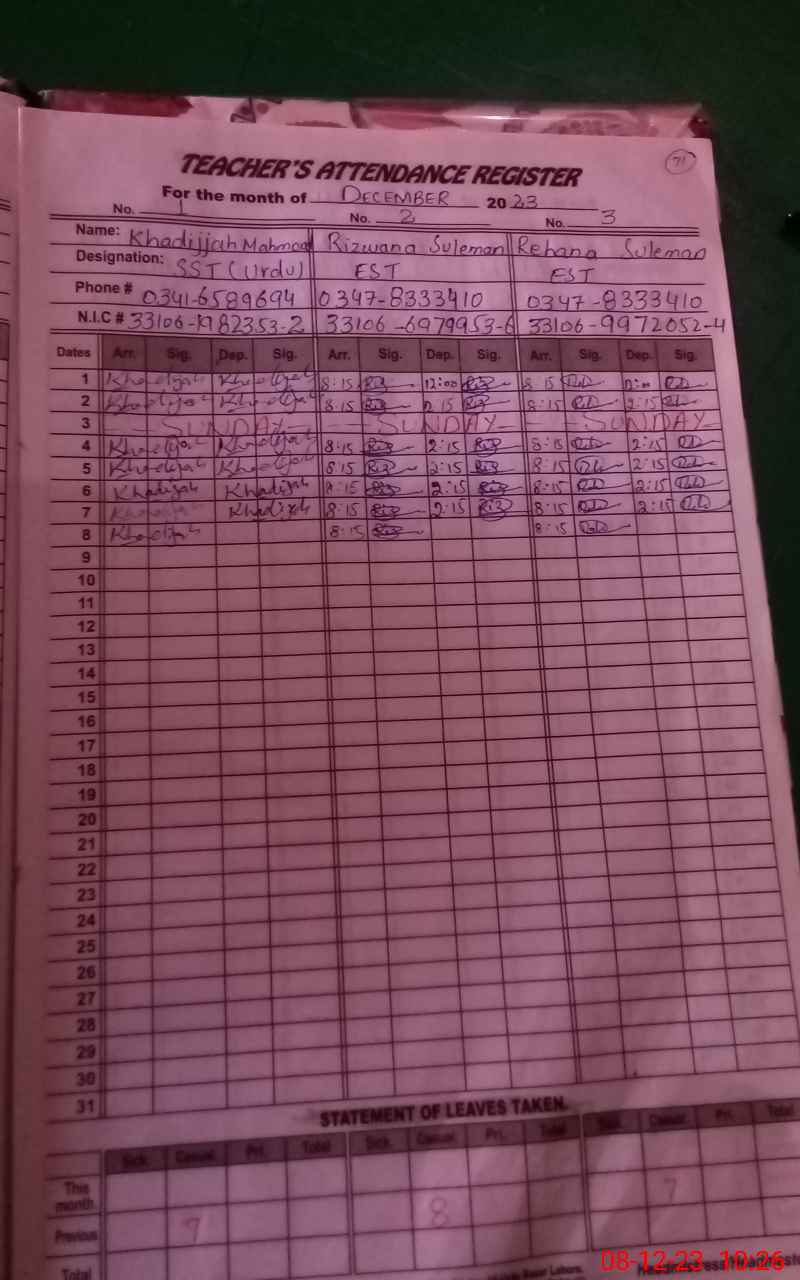 71
TEACHER'S ATTENDANCE REGISTER
For the month of DECEMBER 2023
No. 1 No. 2 No. 3
Name: Khadijjah Mahmood Rizwana Suleman Rehana Suleman
Designation: SST (Urdu) EST EST
Phone # 0341-6589694 0347-8333410 0347-8333410
N.I.C # 33106-1982353-2 33106-6979953-6 33106-9972052-4
Dates Arr. Sig. Dep. Sig. Arr. Sig. Dep. Sig. Arr. Sig. Dep. Sig.
1 Khadijah Khadijah 8:15 Riz 12:00 Riz 8:15
2 Khadijah Khadijah 8:15 Riz 2:15 Riz 8:15 2:15
3 SUNDAY SUNDAY SUNDAY
4 Khadijah Khadijah 8:15 Riz 2:15 Riz 8:15 2:15
5 Khadijah Khadijah 8:15 Riz 2:15 Riz 8:15 2:15
6 Khadijah Khadijah 8:15 Riz 2:15 Riz 8:15 2:15
7 Khadijah Khadijah 8:15 Riz 2:15 Riz 8:15 2:15
8 Khadijah 8:15 Riz 8:15
9
10
11
12
13
14
15
16
17
18
19
20
21
22
23
24
25
26
27
28
29
30
31
STATEMENT OF LEAVES TAKEN.
Sick. Casual. Pri. Total Sick. Casual. Pri. Total Sick. Casual. Pri. Total
This month 7
Previous 7 8
Total
08-12-23 10:26